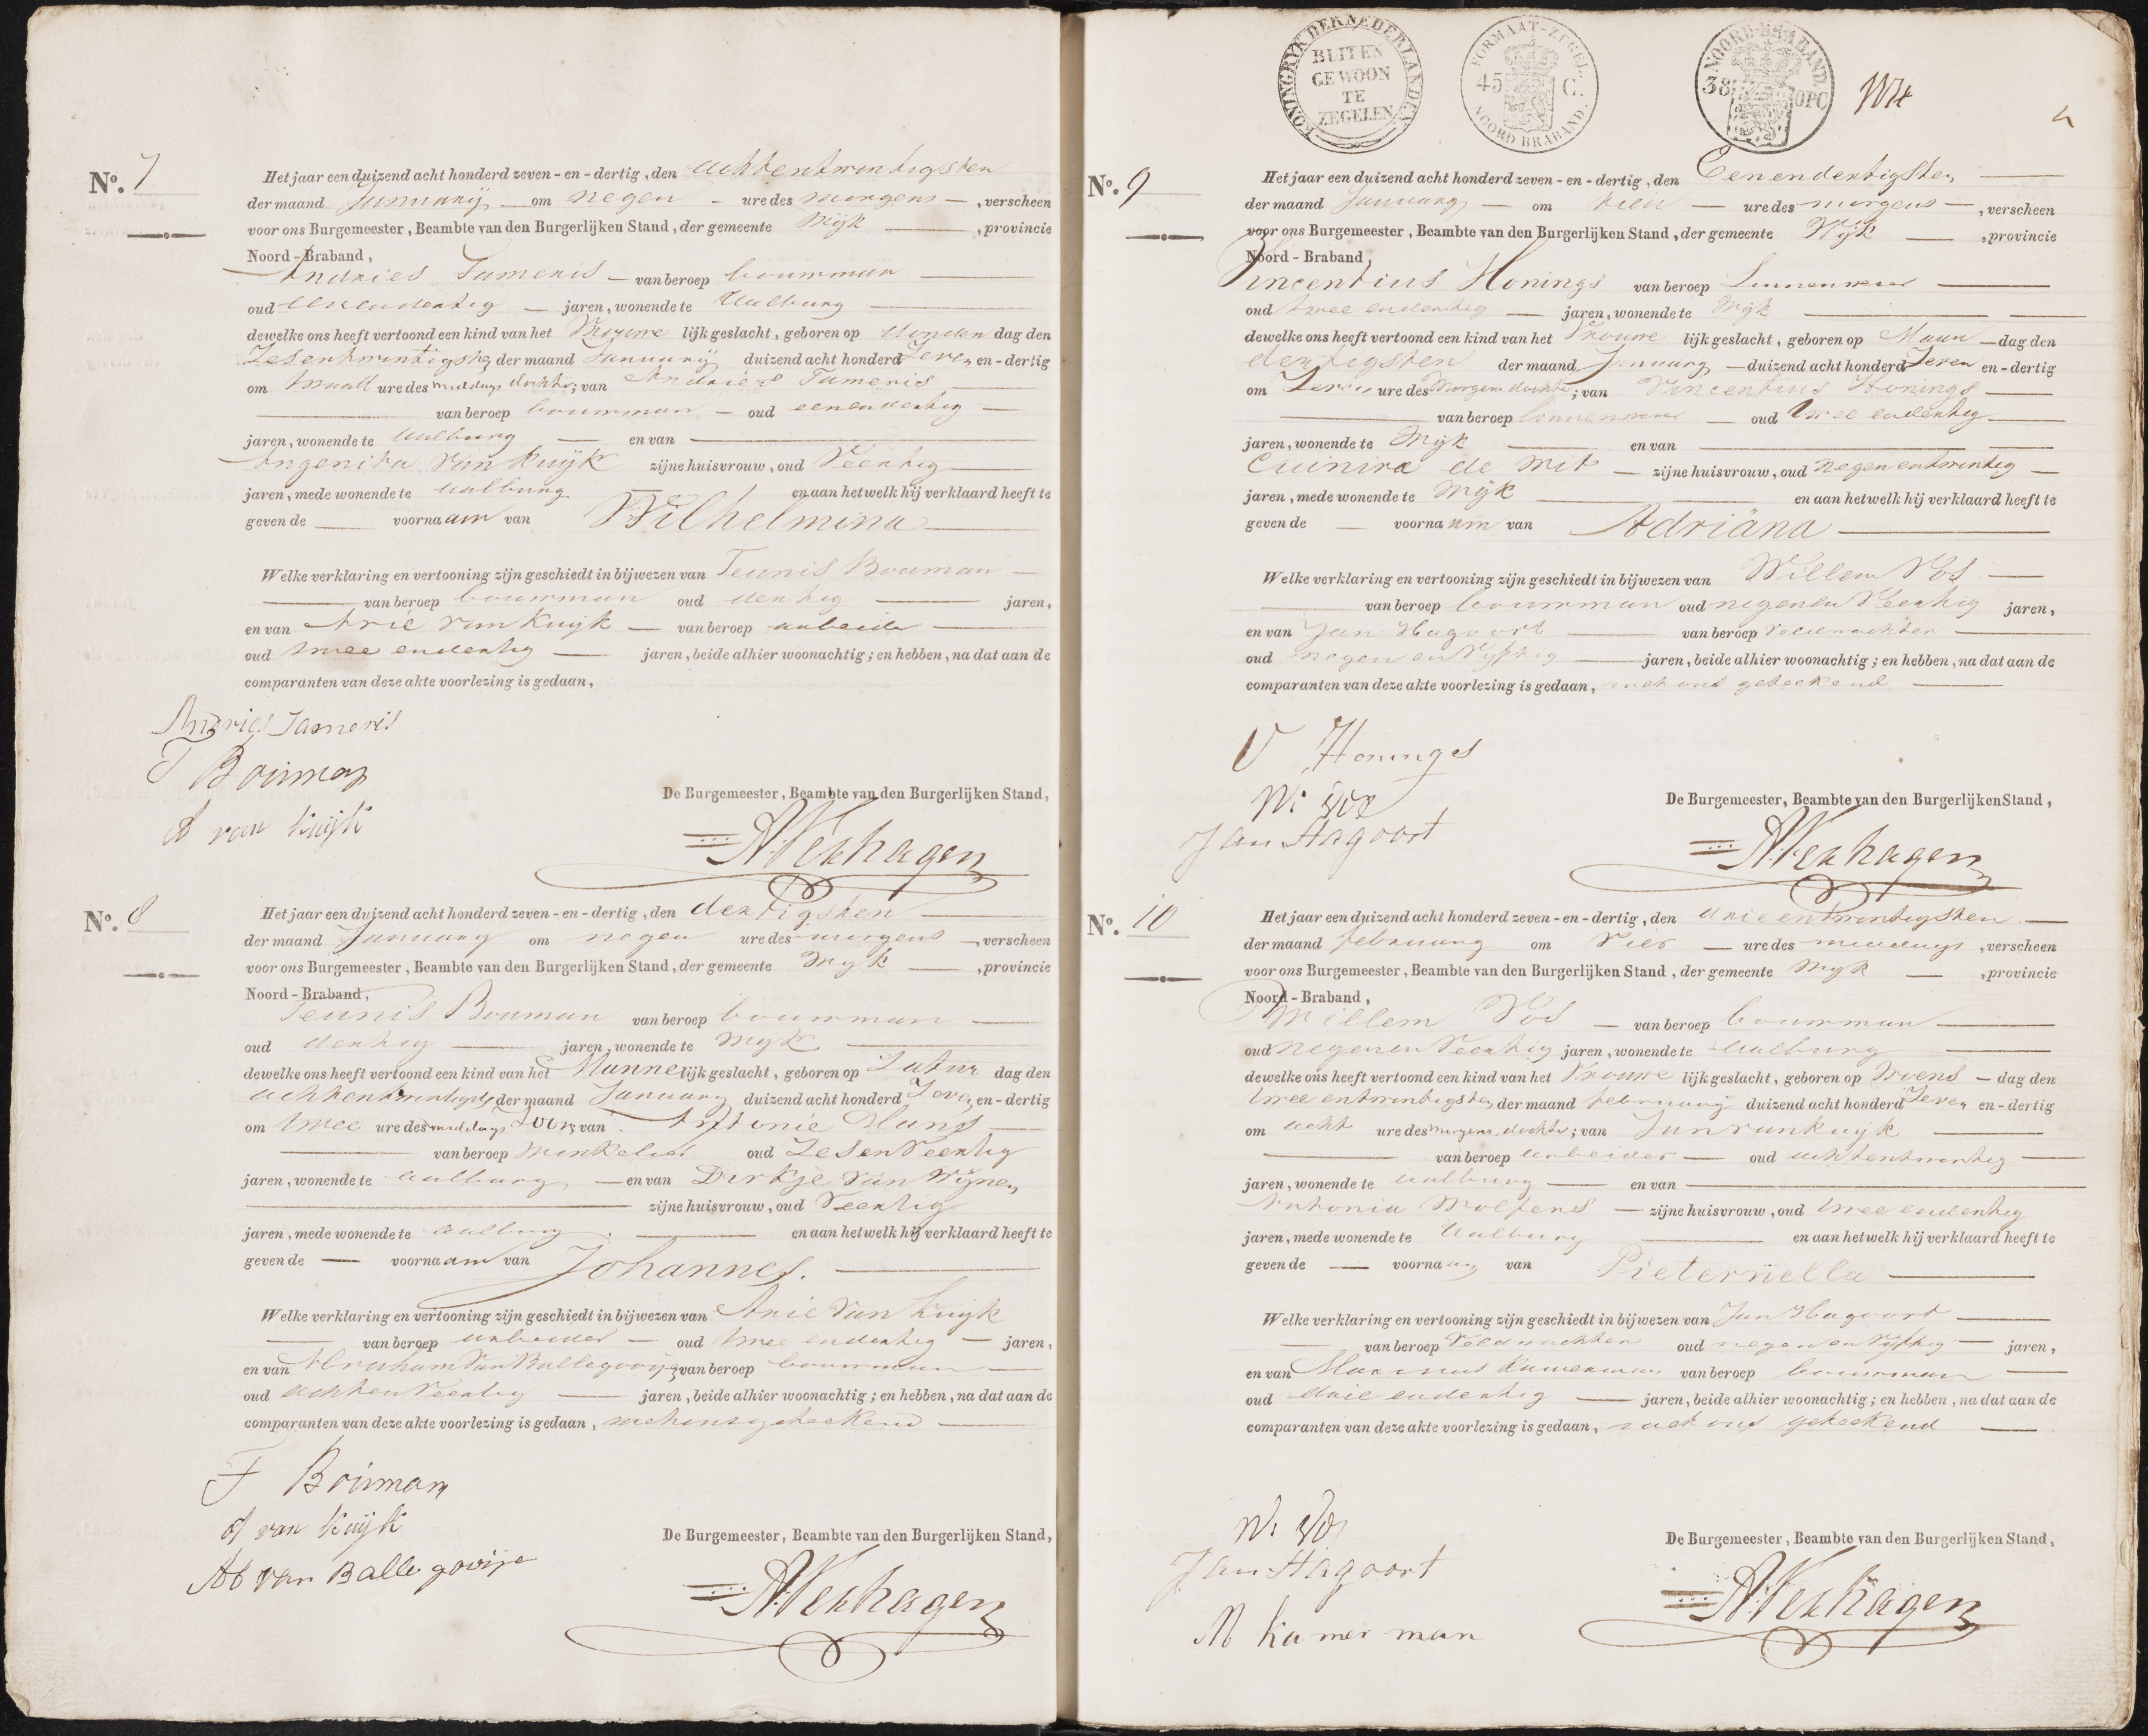 No. 7
Het jaar een duizend acht honderd zeven-en-dertig, den achtentwintigsten
der maand Januarij om negen ure des morgens, verscheen
voor ons Burgemeester, Beambte van den Burgerlijken Stand, der gemeente Wijk, provincie
Noord-Braband,
Andries Tameris van beroep bouwman
oud eenendertig jaren, wonende te Aalburg
dewelke ons heeft vertoond een kind van het Vrouwe lijk geslacht, geboren op donder dag den
Zesentwintigsten der maand Januarij duizend acht honderd Zeven en-dertig
om twaalf ure des middags dochter; van Andries Tameris
van beroep bouwman oud eenendertig
jaren, wonende te Aalburg en van
Ingenita van Kuijk zijne huisvrouw, oud Veertig
jaren, mede wonende te Aalburg en aan hetwelk hij verklaard heeft te
geven de voornaam van Wilhelmina
Welke verklaring en vertooning zijn geschiedt in bijwezen van Teunis Bouman
van beroep bouwman oud dertig jaren,
en van Arie van Kuijk van beroep arbeider
oud twee endertig jaren, beide alhier woonachtig; en hebben, na dat aan de
comparanten van deze akte voorlezing is gedaan,
Andries Tameris
T Bouman
A van Kuijk
De Burgemeester, Beambte van den Burgerlijken Stand,
A. Verhagen
No. 8
Het jaar een duizend acht honderd zeven-en-dertig, den dertigsten
der maand Januarij om negen ure des morgens, verscheen
voor ons Burgemeester, Beambte van den Burgerlijken Stand, der gemeente Wijk, provincie
Noord-Braband,
Teunis Bouman van beroep bouwman
oud dertig jaren, wonende te Wijk
dewelke ons heeft vertoond een kind van het Manne lijk geslacht, geboren op Zatur dag den
achtentwintigste der maand Januarij duizend acht honderd Zeven en-dertig
om twee ure des middags Zoon; van Antonie Mans
van beroep Winkelier oud Zesen Veertig
jaren, wonende te Aalburg en van Dirkje van Wijnen
zijne huisvrouw, oud Veertig
jaren, mede wonende te Aalburg en aan hetwelk hij verklaard heeft te
geven de voornaam van Johannes.
Welke verklaring en vertooning zijn geschiedt in bijwezen van Arie van Kuijk
van beroep arbeider oud twee endertig jaren,
en van Abraham van Ballegooije van beroep bouwman
oud achten Veertig jaren, beide alhier woonachtig; en hebben, na dat aan de
comparanten van deze akte voorlezing is gedaan, met ons geteekend
T Bouman
A van Kuijk
Ab van Ballegooije
De Burgemeester, Beambte van den Burgerlijken Stand,
A. Verhagen
KONINGRYK DER NEDERLANDEN
BUITEN
GEWOON
TE
ZEGELEN
FORMAAT-ZEGEL.
45 C.
NOORD BRABAND.
NOORD-BRABAND
38 OPC
No. 9
Het jaar een duizend acht honderd zeven-en-dertig, den Eenendertigsten
der maand Januarij om tien ure des morgens, verscheen
voor ons Burgemeester, Beambte van den Burgerlijken Stand, der gemeente Wijk, provincie
Noord-Braband,
Vincentius Honings van beroep Linnenwever
oud twee endertig jaren, wonende te Wijk
dewelke ons heeft vertoond een kind van het Vrouwe lijk geslacht, geboren op Maan dag den
dertigsten der maand Januarij duizend acht honderd Zeven en-dertig
om Zeven ure des Morgens dochter; van Vincentius Honings
van beroep linnenwever oud twee endertig
jaren, wonende te Wijk en van
Cuinira de Wit zijne huisvrouw, oud negen entwintig
jaren, mede wonende te Wijk en aan hetwelk hij verklaard heeft te
geven de voornaam van Adriana
Welke verklaring en vertooning zijn geschiedt in bijwezen van Willem Vos
van beroep bouwman oud negenen Veertig jaren,
en van Jan Hagoort van beroep Veldwachter
oud negen en Vijftig jaren, beide alhier woonachtig; en hebben, na dat aan de
comparanten van deze akte voorlezing is gedaan, met ons geteekend
V Honings
W: Vos
Jan Hagoort
De Burgemeester, Beambte van den Burgerlijken Stand,
A. Verhagen
No. 10
Het jaar een duizend acht honderd zeven-en-dertig, den drie entwintigsten
der maand februarij om Vier ure des middags, verscheen
voor ons Burgemeester, Beambte van den Burgerlijken Stand, der gemeente Wijk, provincie
Noord-Braband,
Willem Vos van beroep bouwman
oud negenen Veertig jaren, wonende te Aalburg
dewelke ons heeft vertoond een kind van het Vrouwe lijk geslacht, geboren op Woens dag den
twee entwintigsten der maand februarij duizend acht honderd Zeven en-dertig
om acht ure des morgens dochter; van Jan van Kuijk
van beroep arbeider oud achtentwintig
jaren, wonende te Aalburg en van
Antonia Wolfens zijne huisvrouw, oud twee endertig
jaren, mede wonende te Aalburg en aan hetwelk hij verklaard heeft te
geven de voornaam van Pieternella
Welke verklaring en vertooning zijn geschiedt in bijwezen van Jan Hagoort
van beroep Veldwachter oud negen en Vijftig jaren,
en van Marinus Kamerman van beroep bouwman
oud drie endertig jaren, beide alhier woonachtig; en hebben, na dat aan de
comparanten van deze akte voorlezing is gedaan, met ons geteekend
W: Vos
Jan Hagoort
M Kamerman
De Burgemeester, Beambte van den Burgerlijken Stand,
A. Verhagen